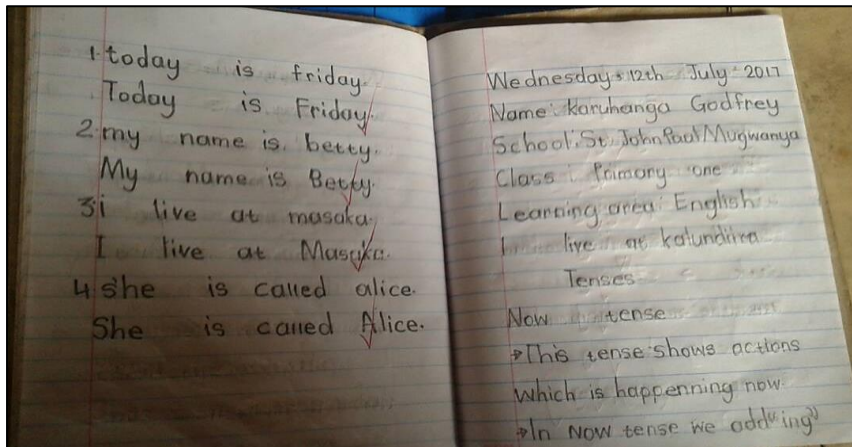 1. today is friday.
Today is Friday.
2. my name is betty.
My name is Betty.
3. i live at masaka.
I live at Masaka.
4. she is called alice.
She is called Alice.
Wednesday 12th July 2017
Name: Karuhanga Godfrey
School: St. John Paul Mugwanya
Class: Primary one
Learning area: English
I live at
Tenses
Now tense
→This tense shows actions
which is happenning now.
→In Now tense we add "ing"